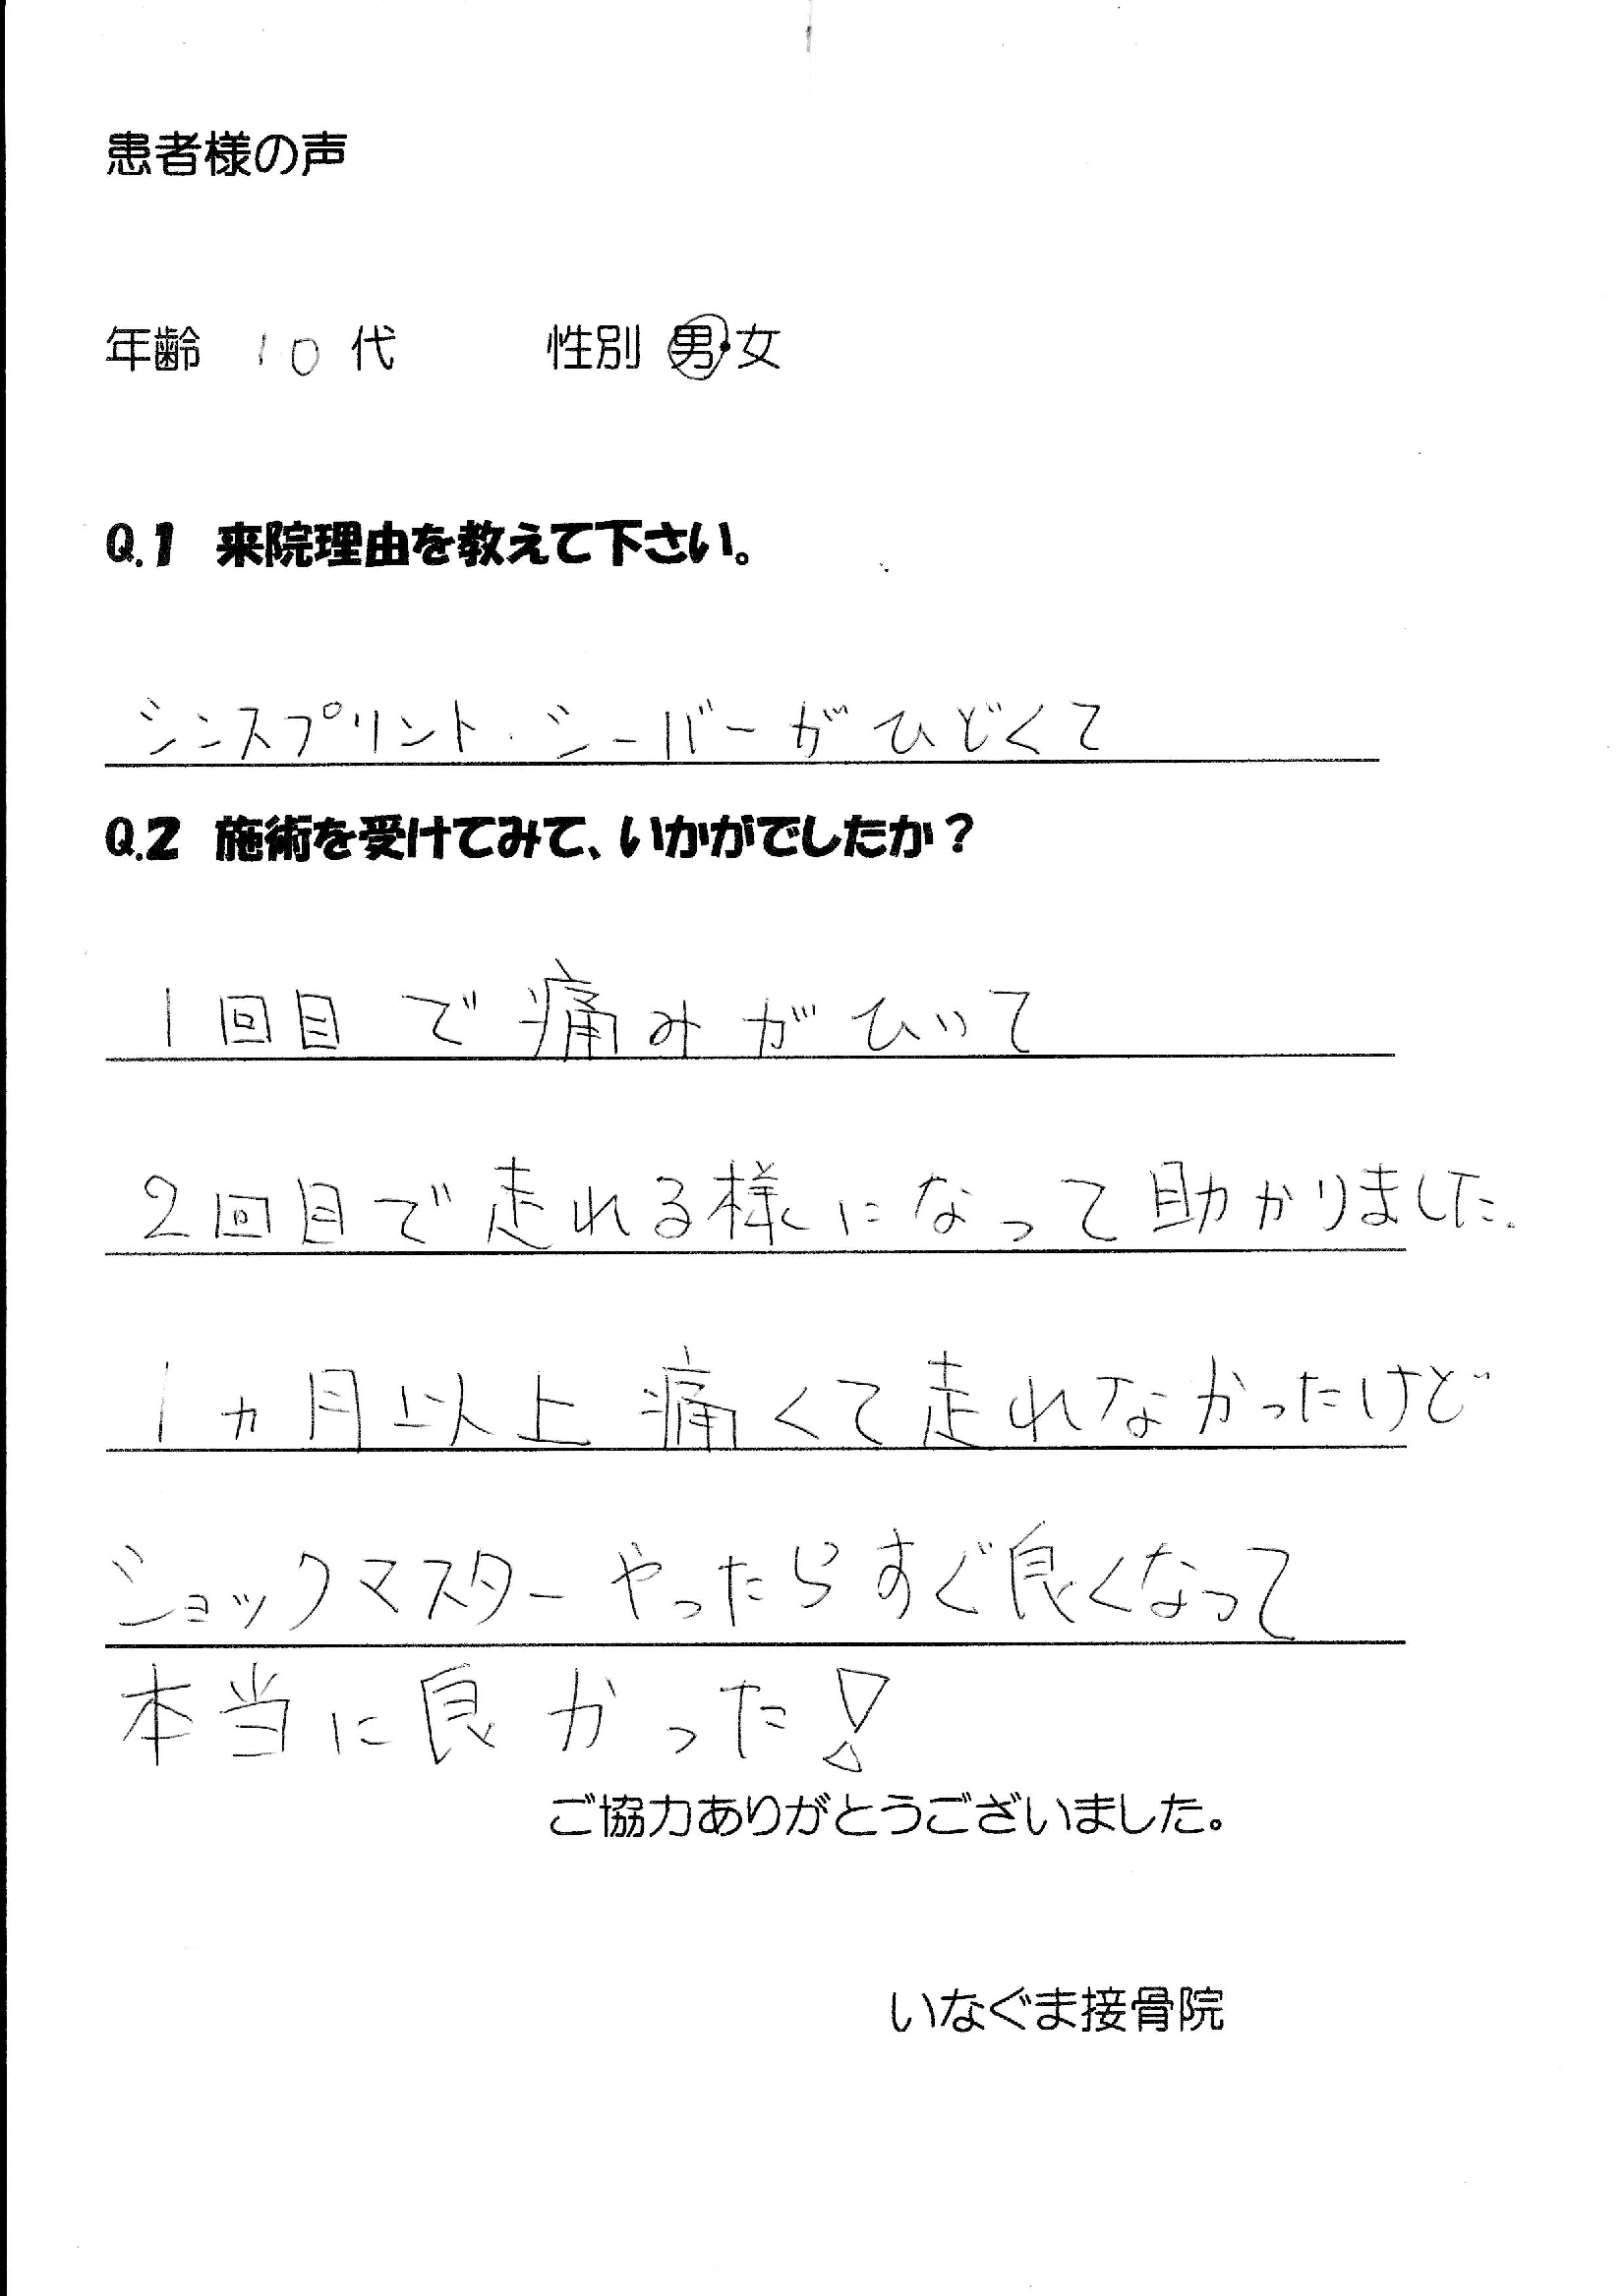 患者様の声
年齢 10代 性別 男・女
Q.1 来院理由を教えて下さい。
シンスプリント・シーバーがひどくて
Q.2 施術を受けてみて、いかがでしたか？
1回目で痛みがひいて
2回目で走れる様になって助かりました.
1ヵ月以上痛くて走れなかったけど
ショックマスターやったらすぐ良くなって
本当に良かった!
ご協力ありがとうございました。
いなぐま接骨院